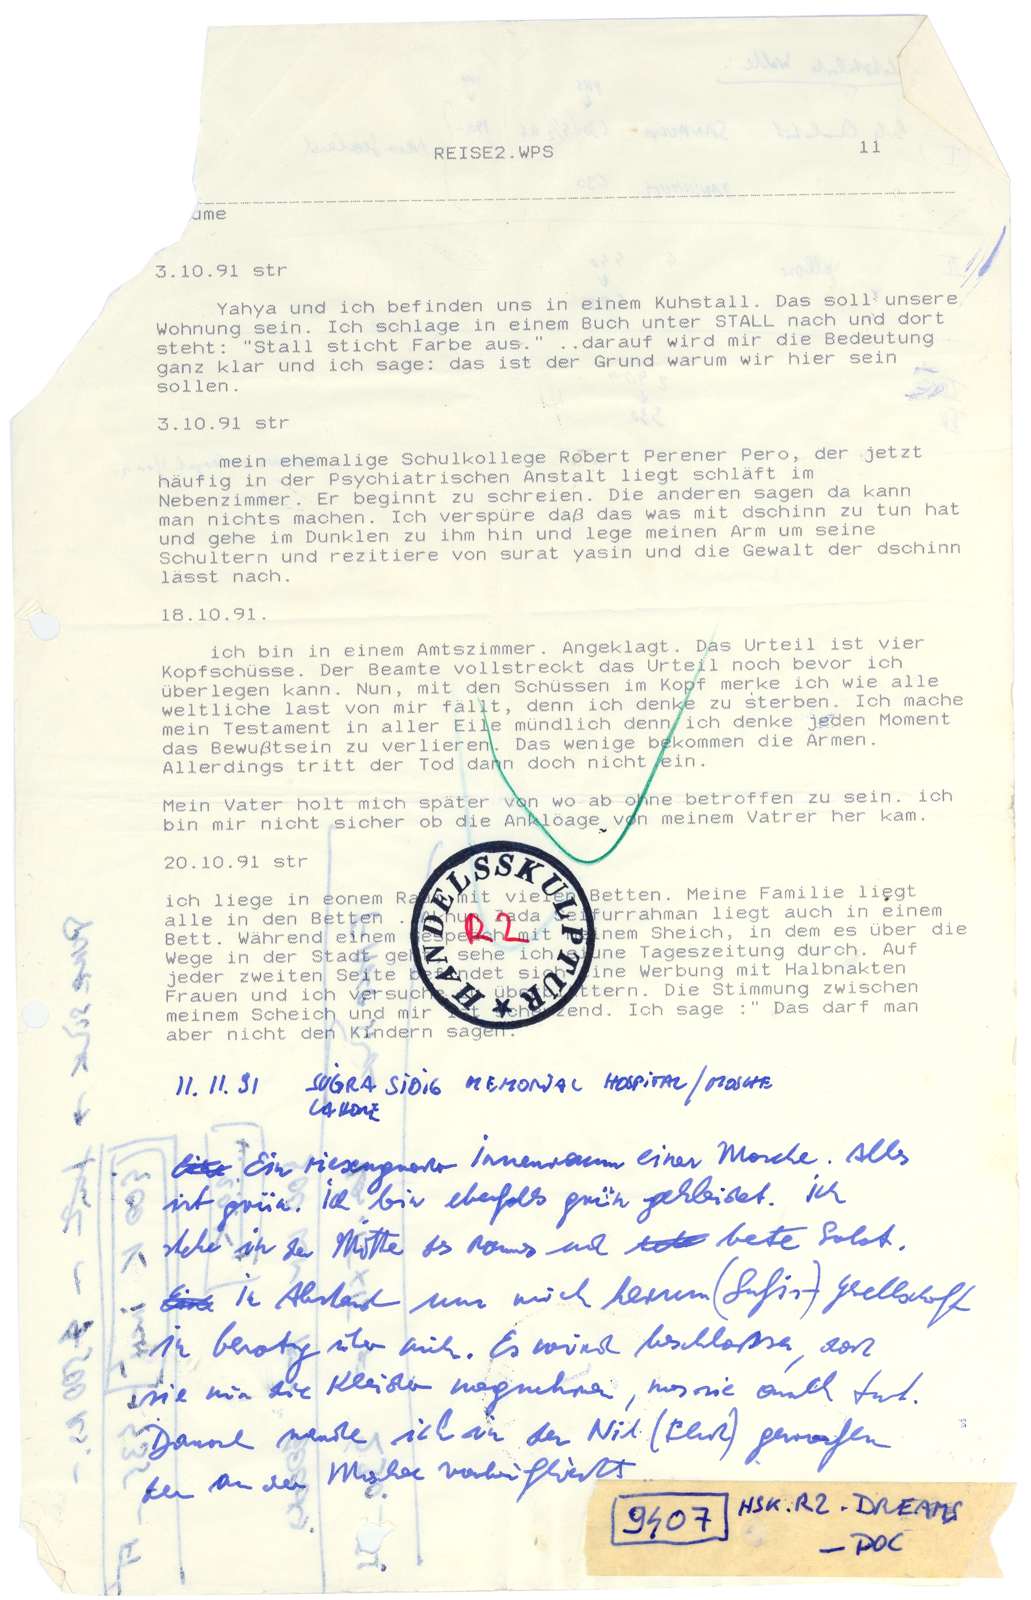 REISE2.WPS 11
ume
3.10.91 str
Yahya und ich befinden uns in einem Kuhstall. Das soll unsere
Wohnung sein. Ich schlage in einem Buch unter STALL nach und dort
steht: "Stall sticht Farbe aus." ..darauf wird mir die Bedeutung
ganz klar und ich sage: das ist der Grund warum wir hier sein
sollen.
3.10.91 str
mein ehemalige Schulkollege Robert Perener Pero, der jetzt
häufig in der Psychiatrischen Anstalt liegt schläft im
Nebenzimmer. Er beginnt zu schreien. Die anderen sagen da kann
man nichts machen. Ich verspüre daß das was mit dschinn zu tun hat
und gehe im Dunklen zu ihm hin und lege meinen Arm um seine
Schultern und rezitiere von surat yasin und die Gewalt der dschinn
lässt nach.
18.10.91.
ich bin in einem Amtszimmer. Angeklagt. Das Urteil ist vier
Kopfschüsse. Der Beamte vollstreckt das Urteil noch bevor ich
überlegen kann. Nun, mit den Schüssen im Kopf merke ich wie alle
weltliche last von mir fällt, denn ich denke zu sterben. Ich mache
mein Testament in aller Eile mündlich denn ich denke jeden Moment
das Bewußtsein zu verlieren. Das wenige bekommen die Armen.
Allerdings tritt der Tod dann doch nicht ein.
Mein Vater holt mich später von wo ab ohne betroffen zu sein. ich
bin mir nicht sicher ob die Anklöage von meinem Vatrer her kam.
20.10.91 str
ich liege in eonem Raum mit vielen Betten. Meine Familie liegt
alle in den Betten . Zada Seifurrahman liegt auch in einem
Bett. Während einem Gespräch mit meinem Sheich, in dem es über die
Wege in der Stadt geht, sehe ich eiune Tageszeitung durch. Auf
jeder zweiten Seite befindet sich eine Werbung mit Halbnakten
Frauen und ich versuche zu überblättern. Die Stimmung zwischen
meinem Scheich und mir ist scherzend. Ich sage :" Das darf man
aber nicht den Kindern sagen.
HANDELSSKULPTUR ★
R2
11.11.91 SUGRA SIDIG MEMORIAL HOSPITAL/MOSCHE
LAHORE
Ein riesengroßer Innenraum einer Moschee. Alles
ist grün. Ich bin ebenfalls grün gekleidet. Ich
stehe in der Mitte des Raumes und bete Salat.
in Abstand um mich herum (Sufis-) Gesellschaft
in beratg über mich. Es wird beschlossen, dass
sie mir die Kleider wegnehmen, was sie auch tut.
Danach werde ich in den Nil geworfen
der an der Moschee vorbeifließt
9407 HSK.R2-DREAMS
-DOC